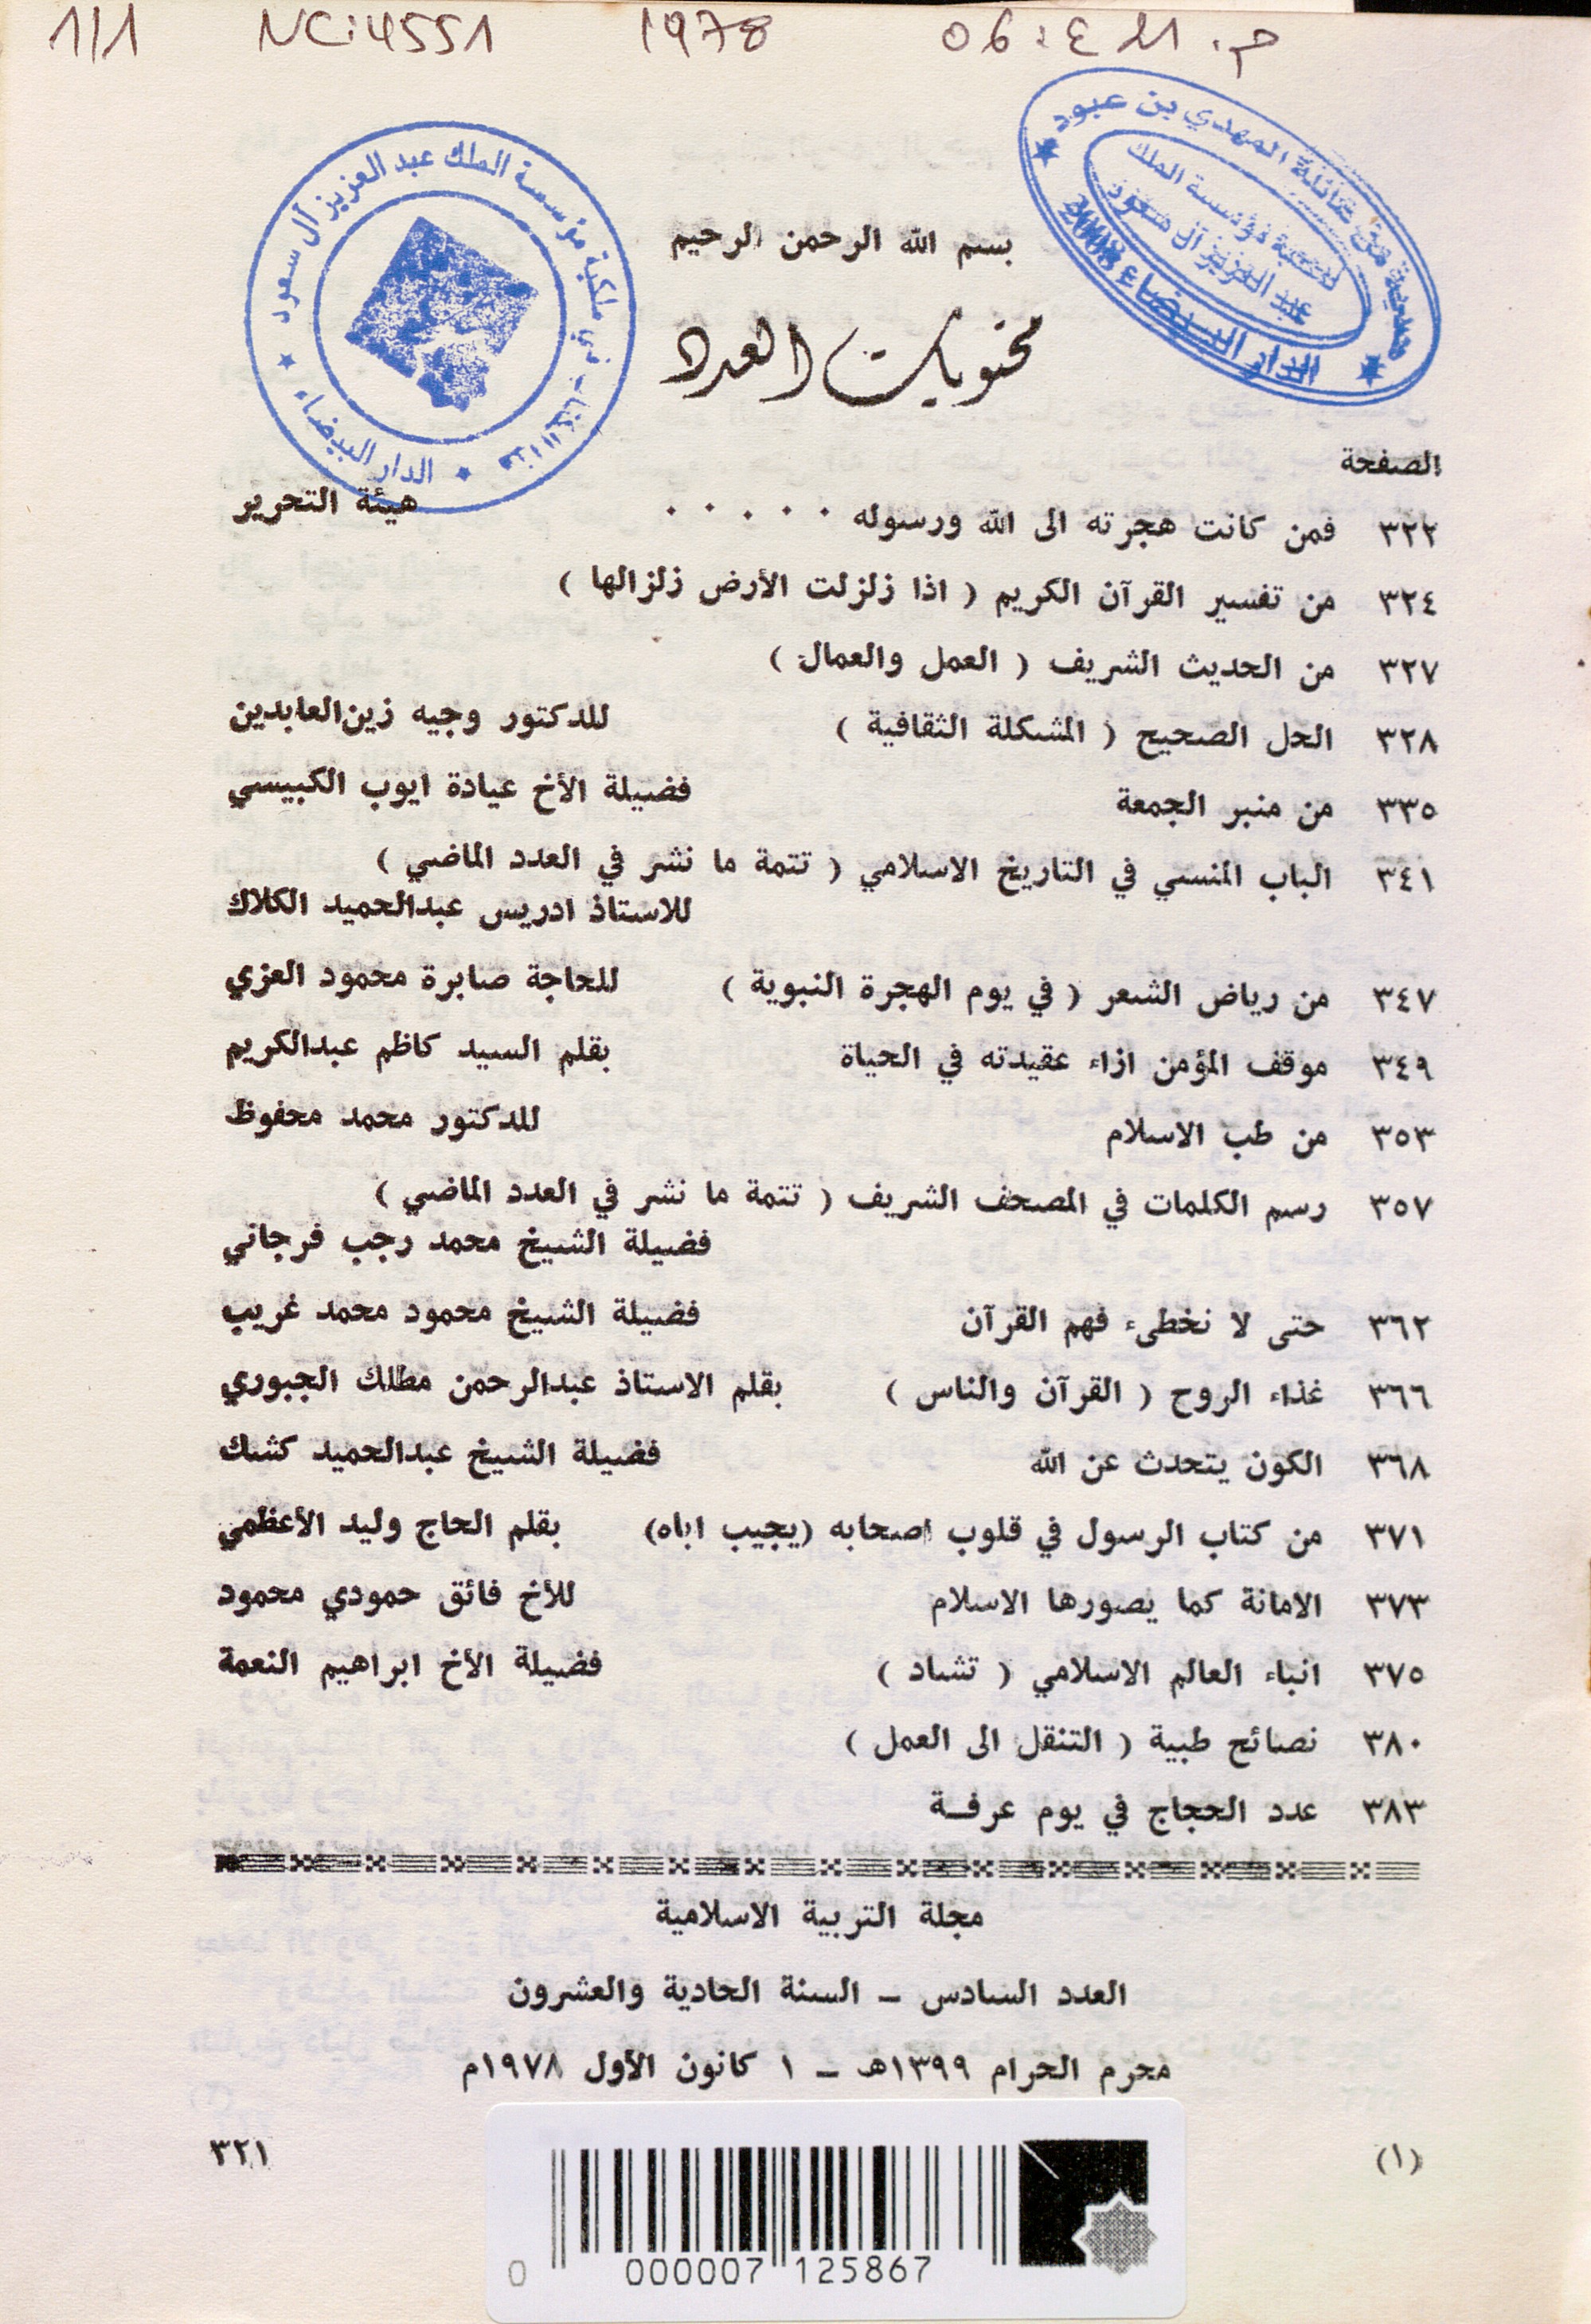 1/1 NC:4551 1978 م. 21 ع : 06
هدية من عائلة المهدي بن عبود
لمكتبة مؤسسة الملك
عبد العزيز آل سعود
الدار البيضاء 2008
هذا الكتاب في ملكية مؤسسة الملك عبد العزيز آل سعود
الدار البيضاء
بسم الله الرحمن الرحيم
محتويات العدد
الصفحة
٣٢٢ فمن كانت هجرته الى الله ورسوله . . . . . هيئة التحرير
٣٢٤ من تفسير القرآن الكريم ( اذا زلزلت الأرض زلزالها )
٣٢٧ من الحديث الشريف ( العمل والعمال )
٣٢٨ الحل الصحيح ( المشكلة الثقافية ) للدكتور وجيه زين‌العابدين
٣٣٥ من منبر الجمعة فضيلة الأخ عيادة ايوب الكبيسي
٣٤١ الباب المنسي في التاريخ الاسلامي ( تتمة ما نشر في العدد الماضي )
للاستاذ ادريس عبدالحميد الكلاك
٣٤٧ من رياض الشعر ( في يوم الهجرة النبوية ) للحاجة صابرة محمود العزي
٣٤٩ موقف المؤمن ازاء عقيدته في الحياة بقلم السيد كاظم عبدالكريم
٣٥٣ من طب الاسلام للدكتور محمد محفوظ
٣٥٧ رسم الكلمات في المصحف الشريف ( تتمة ما نشر في العدد الماضي )
فضيلة الشيخ محمد رجب فرجاني
٣٦٢ حتى لا نخطىء فهم القرآن فضيلة الشيخ محمود محمد غريب
٣٦٦ غذاء الروح ( القرآن والناس ) بقلم الاستاذ عبدالرحمن مطلك الجبوري
٣٦٨ الكون يتحدث عن الله فضيلة الشيخ عبدالحميد كشك
٣٧١ من كتاب الرسول في قلوب اصحابه (يجيب اباه) بقلم الحاج وليد الأعظمي
٣٧٣ الامانة كما يصورها الاسلام للأخ فائق حمودي محمود
٣٧٥ انباء العالم الاسلامي ( تشاد ) فضيلة الأخ ابراهيم النعمة
٣٨٠ نصائح طبية ( التنقل الى العمل )
٣٨٣ عدد الحجاج في يوم عرفـة
مجلة التربية الاسلامية
العدد السادس ــ السنة الحادية والعشرون
محرم الحرام ١٣٩٩هـ ــ ١ كانون الأول ١٩٧٨م
(١) ٣٢١
0 000007 125867